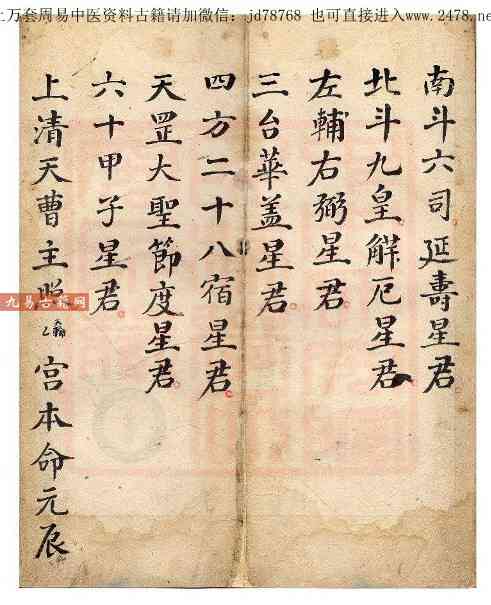 上万套周易中医资料古籍请加微信：jd78768 也可直接进入www.2478.ne
南斗六司延壽星君
北斗九皇解厄星君
左輔右弼星君
三台華盖星君
四方二十八宿星君
天罡大聖節度星君
六十甲子星君
上清天曹主照宮本命元辰
九易古籍网